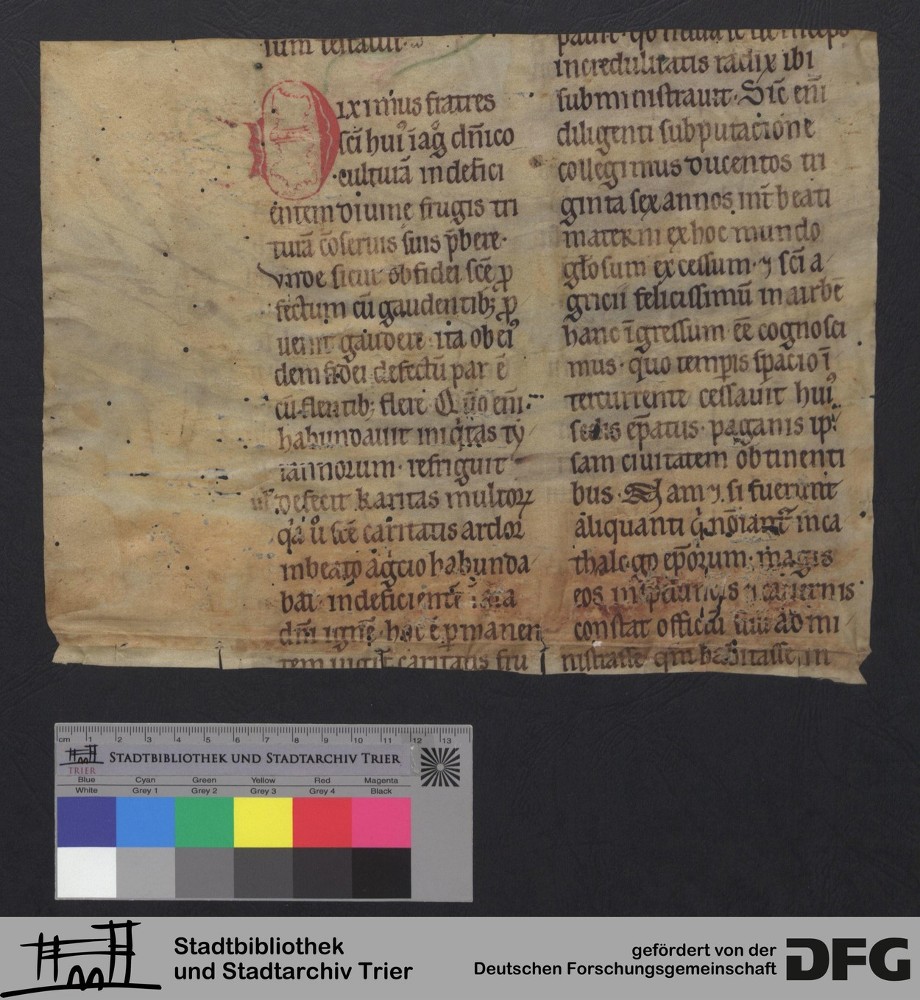 sum
Diximus fratres
sc̄i huiꝰ iāg̊ dn̄ico
culturā indefici
entem diuine frugis tri
tuā cōseruis suis p̄bere·
Vnde sicut ob fidei sc̄e ꝓ
fectum cū gaudentibꝫ ꝓ
uenit gaudere· ita ob ei
dem fidei defectū par ē
cū flentibꝫ flere. Qn̄o eni·
habundauit iniq̇tas ty
rannorum· refriguit
defecit karitas multorꝝ
q̇a u̇ sc̄e caritatis ardor
in beato agcio habunda
bat indeficient
dn̄i ignē· hoc ē ꝑmanen
tem caritatis fru
incredulitatis radix ibi
subministrauit· Sic eni
diligenti subputacione
collegimus ducentos tri
ginta sex annos int̄ beati
materni ex hoc mundo
gl̄osum excessum· ⁊ sc̄i a
gricii felicissimū in a urbē
hanc īgressum· ēē cognosci
mus· quo tempis spacio ī
tercurrente cessauit huiꝰ
sedis ep̄atus· paganis ip
sam ciuitatem obtinenti
bus· Nam ⁊ si fuerunt
aliquanti q̇ noiant̄ in ca
thalogo ep̄orum· magis
eos ⁊ cauernis
constat officiū suū admi
nistrasse· qm habitasse in
cm 1 2 3 4 5 6 7 8 9 10 11 12 13
TRIER
STADTBIBLIOTHEK UND STADTARCHIV TRIER
Blue Cyan Green Yellow Red Magenta
White Grey 1 Grey 2 Grey 3 Grey 4 Black
Stadtbibliothek
und Stadtarchiv Trier
gefördert von der
Deutschen Forschungsgemeinschaft
DFG